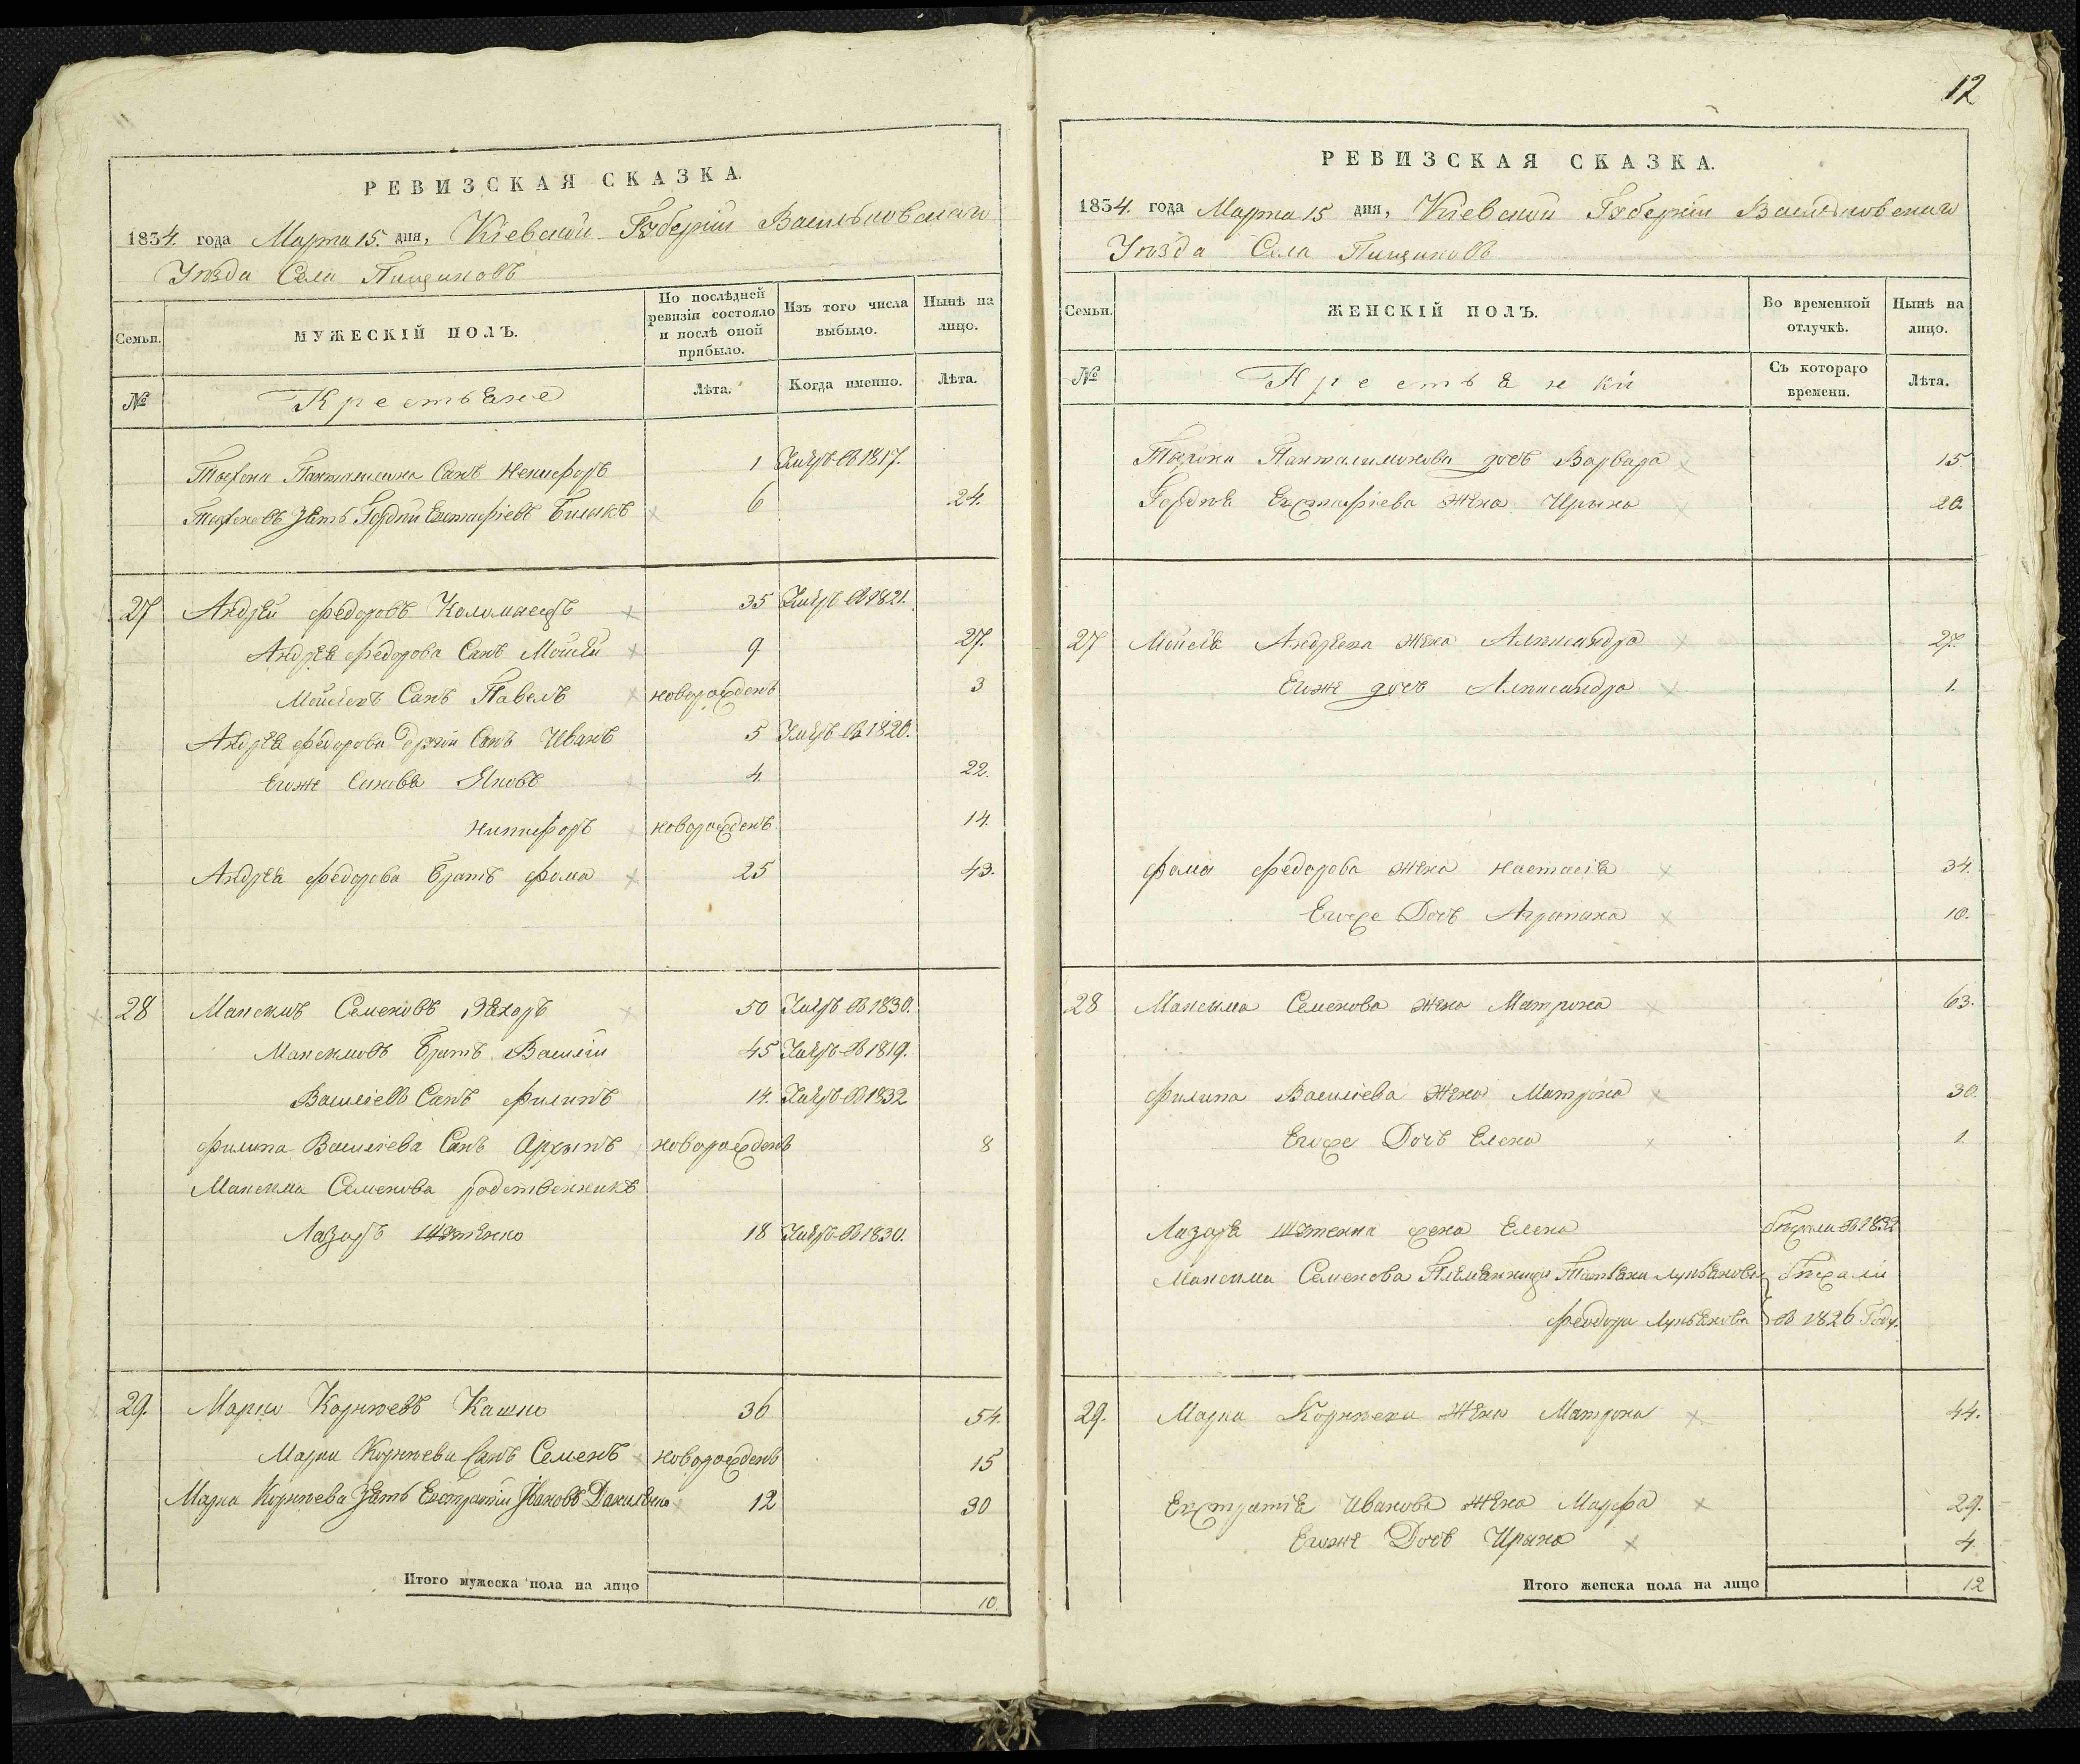 РЕВИЗСКАЯ СКАЗКА.
1834. года Марта 15. дня, Кіевской Губерніи Васильковскаго
Уѣзда Села Пищиковъ
Семьи.
МУЖЕСКІЙ ПОЛЪ.
По послѣдней ревизіи состояло и послѣ оной прибыло.
Изъ того числа выбыло.
Нынѣ на лицо.
№
Крестьяне
Лѣта.
Когда именно.
Лѣта.
Тихона Панталимона Сынъ Никифоръ 1 Умеръ въ 1817.
Тихоновъ Зять Гордій Евстафіевъ Билыкъ 6 24.
27 Андрей Федоровъ Коломиецъ 35 Умеръ въ 1821.
Андрея Федорова Сынъ Мойсей 9 27.
Мойсеевъ Сынъ Павелъ новорожденъ 3
Андрея Федорова другій Сынъ Иванъ 5 Умеръ въ 1820.
Егоже Синовя Яковъ 4. 22.
Никифоръ новорожденъ 14.
Андрея Федорова братъ Фома 25 43.
28 Максимъ Семеновъ 50 Умеръ въ 1830.
Максимовъ братъ Василій 45 Умеръ въ 1819.
Василіевъ Сынъ Филипъ 14. Умеръ въ 1832
Филипа Василіева Сынъ Архыпъ новорожденъ 8
Максима Семенова родственникъ
Лазарь 18 Умеръ въ 1830.
29. Марко Корнѣевъ Кашко 36 54.
Марка Корнѣева Сынъ Семенъ новорожденъ 15
Марка Корнѣева Зять Евстратій Ивановъ 12 30
Итого мужеска пола на лицо 10.
12
РЕВИЗСКАЯ СКАЗКА.
1834. года Марта 15 дня, Кіевской Губерніи Васильковскаго
Уѣзда Села Пищиковъ
Семьи.
ЖЕНСКІЙ ПОЛЪ.
Во временной отлучкѣ.
Нынѣ на лицо.
№
Крестьянки
Съ котораго времени.
Лѣта.
Тихона Панталимонова дочь Варвара 15
Гордѣя Евстафіева жена Ирына 20.
27 Мойсея Андреева жена Александра 27.
Егоже дочь Александра 1.
Фомы Федорова жена Настасія 34.
Егоже Дочь Агрипина 10.
28 Максыма Семенова жена Матрона 63.
Филипа Василіева жена Матрона 30.
Егоже Дочь Елена 1.
Лазаря жена Елена Бѣжали въ 1832
Максима Семенова Племянницы Татьяна Лукьянова Бѣжали
Феодора Лукьянова въ 1826 Году.
29. Марка Корнѣева жена Матрона 44.
Евстратія Иванова жена Марфа 29.
Егоже Дочь Ирына 4.
Итого женска пола на лицо 12